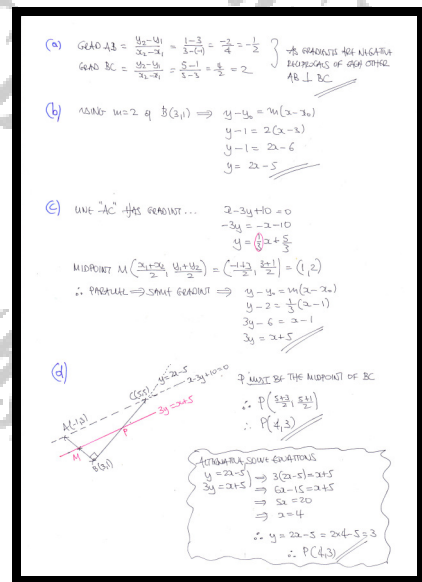 (a) GRAD AB = y₂-y₁/x₂-x₁ = 1-3/3-(-1) = -2/4 = -1/2
GRAD BC = y₂-y₁/x₂-x₁ = 5-1/5-3 = 4/2 = 2
AS GRADIENTS ARE NEGATIVE
RECIPROCALS OF EACH OTHER
AB ⊥ BC
(b) USING m=2 & B(3,1) ⟹ y-y₀ = m(x-x₀)
y-1 = 2(x-3)
y-1 = 2x-6
y = 2x-5
(c) LINE "AC" HAS GRADIENT... x-3y+10=0
-3y = -x-10
y = 1/3x + 10/3
MIDPOINT M(x₁+x₂/2, y₁+y₂/2) = (-1+3/2, 3+1/2) = (1,2)
∴ PARALLEL ⟹ SAME GRADIENT ⟹ y-y₀ = m(x-x₀)
y-2 = 1/3(x-1)
3y-6 = x-1
3y = x+5
(d)
y=2x-5
C(5,5)
x-3y+10=0
A(-1,3)
3y=x+5
P
M
B(3,1)
P MUST BE THE MIDPOINT OF BC
∴ P(5+3/2, 5+1/2)
∴ P(4,3)
ALTERNATIVE SOLVE EQUATIONS
y = 2x-5
3y = x+5
⟹ 3(2x-5)=x+5
⟹ 6x-15=x+5
⟹ 5x=20
⟹ x=4
∴ y = 2x-5 = 2×4-5=3
∴ P(4,3)